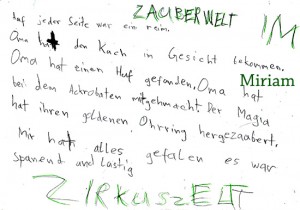 ZAUBERWELT IM
Auf jeder Seite war ein reim.
Oma hat den Kuch in Gesicht bekommen.
Oma hat einen Huf gefunden. Oma hat
Miriam
bei dem Ackrobaten mitgemacht Der Magia
hat ihren goldenen Ohrring hergezaubert.
Mir hat alles gefalen es war
spanend und lustig
ZIRKUSZELT